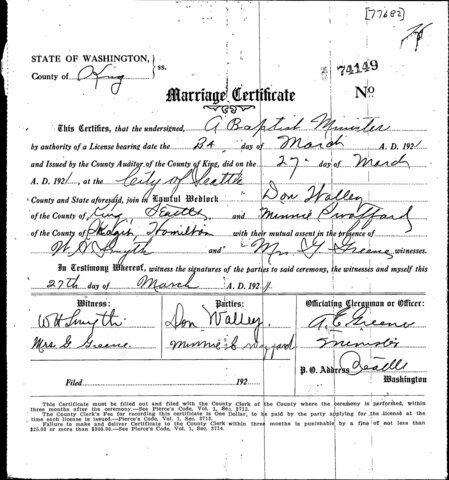 [77682]
STATE OF WASHINGTON,
County of King
ss.
74149
Marriage Certificate
No
This Certifies, that the undersigned, A Baptist Minister
by authority of a License bearing date the 24 day of March A. D. 1921
and Issued by the County Auditor of the County of King, did on the 27 day of March
A. D. 1921, at the City of Seattle
County and State aforesaid, join in Lawful Wedlock Don Walley
of the County of King, Seattle and Minnie C
of the County of Skagit, Hamilton with their mutual assent in the presence of
W. H. Smyth and Mrs G Greene witnesses.
In Testimony Whereof, witness the signatures of the parties to said ceremony, the witnesses and myself this
27th day of March A. D. 1921
Witness:
Parties:
Officiating Clergyman or Officer:
W H Smyth
Don Walley
A E Greene
Mrs. G Greene
Minnie C
Minister
P. O. Address Seattle
Washington
Filed 192
This Certificate must be filled out and filed with the County Clerk of the County where the ceremony is performed, within
three months after the ceremony.—See Pierce's Code, Vol. 1, Sec. 3712.
The County Clerk's Fee for recording this certificate is One Dollar, to be paid by the party applying for the license at the
time each license is issued.—Pierce's Code, Vol. 1, Sec. 3713.
Failure to make and deliver Certificate to the County Clerk within three months is punishable by a fine of not less than
$25.00 or more than $300.00.—See Pierce's Code, Vol. 1, Sec. 3714.